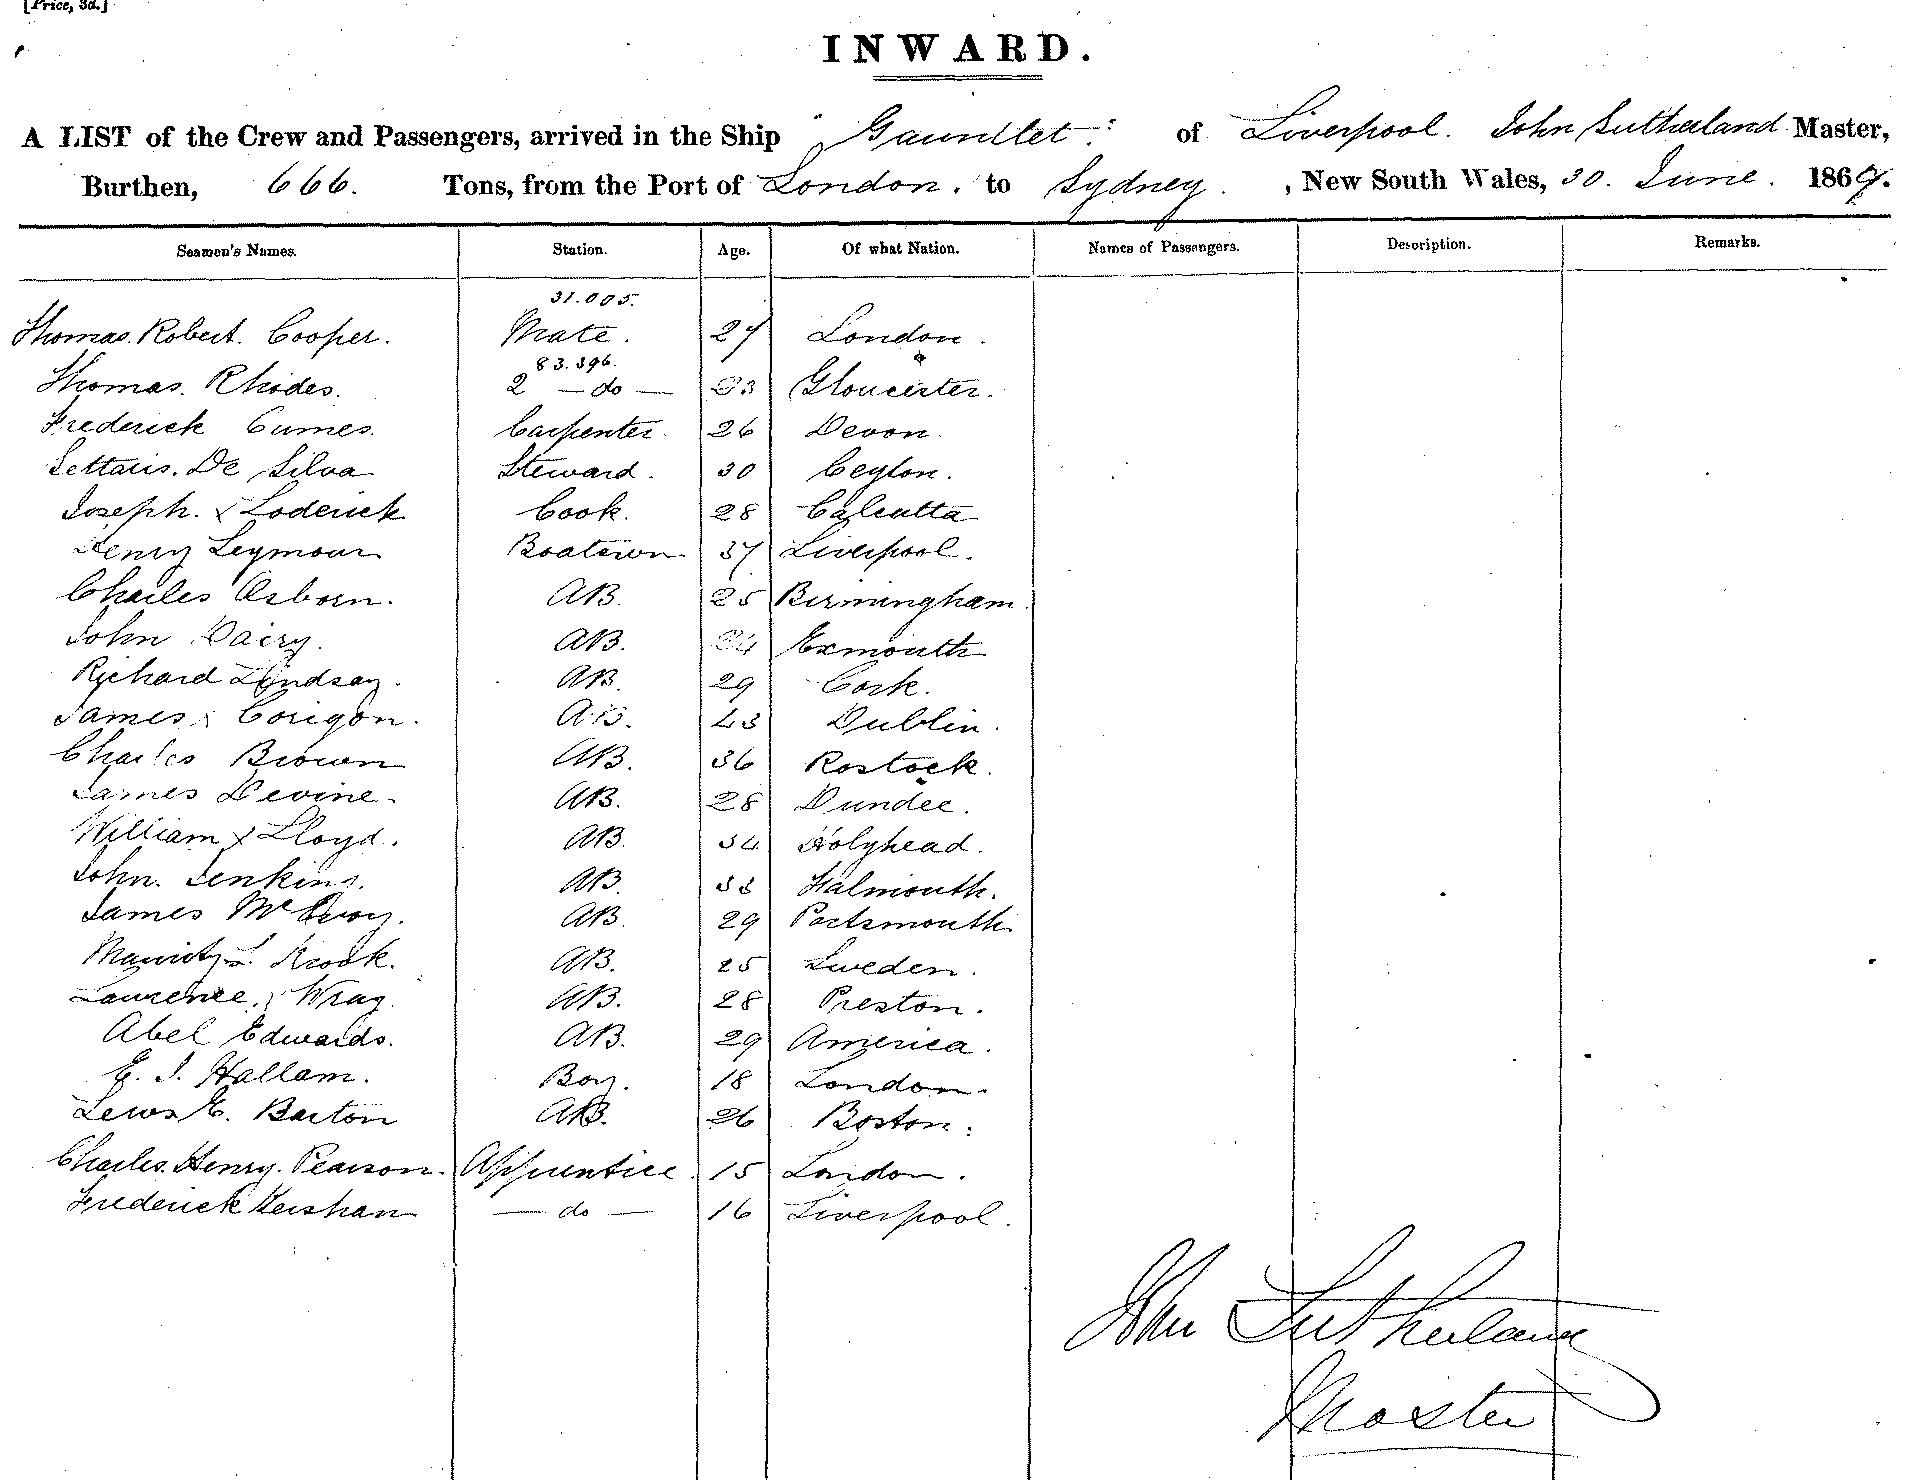 [Price, 3d.]
INWARD.
A LIST of the Crew and Passengers, arrived in the Ship "Gauntlet" of Liverpool. John Sutherland Master,
Burthen, 666. Tons, from the Port of London. to Sydney. , New South Wales, 30. June. 1869.
Seamen's Names. Station. Age. Of what Nation. Names of Passengers. Description. Remarks.
31.005.
Thomas. Robert. Cooper. Mate. 27 London.
83.396.
Thomas. Rhodes. 2 — do — 23 Gloucester.
Frederick Cumes. Carpenter. 26 Devon.
De Silva Steward. 30 Ceylon.
Joseph. x Loderick Cook. 28 Calcutta
Henry Seymour Boatswn. 37 Liverpool.
Charles Osborn. AB. 25 Birmingham.
John Dairy. AB. 34 Exmouth
Richard Lindsay. AB. 29 Cork.
James x Corigon. AB. 43 Dublin.
Charles Brown AB. 36 Rostock.
James Devine. AB. 28 Dundee.
William x Lloyd. AB. 34 Holyhead.
John. Jenkins. AB. 33 Falmouth.
James McEvoy. AB. 29 Portsmouth
L. Krook. AB. 25 Sweden.
Laurence. x Wray. AB. 28 Preston.
Abel Edwards. AB. 29 America.
E. J. Hallam. Boy. 18 London.
Lews E. Barton AB. 26 Boston.
Charles. Henry. Pearson. Apprentice. 15 London.
Frederick Kershaw — do — 16 Liverpool.
John Sutherland
Master